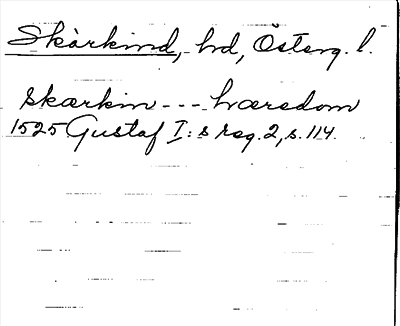 Skärkind, hd, Österg. l.
skærkin --- hæredom
1525 Gustaf I:s reg. 2, s. 114.